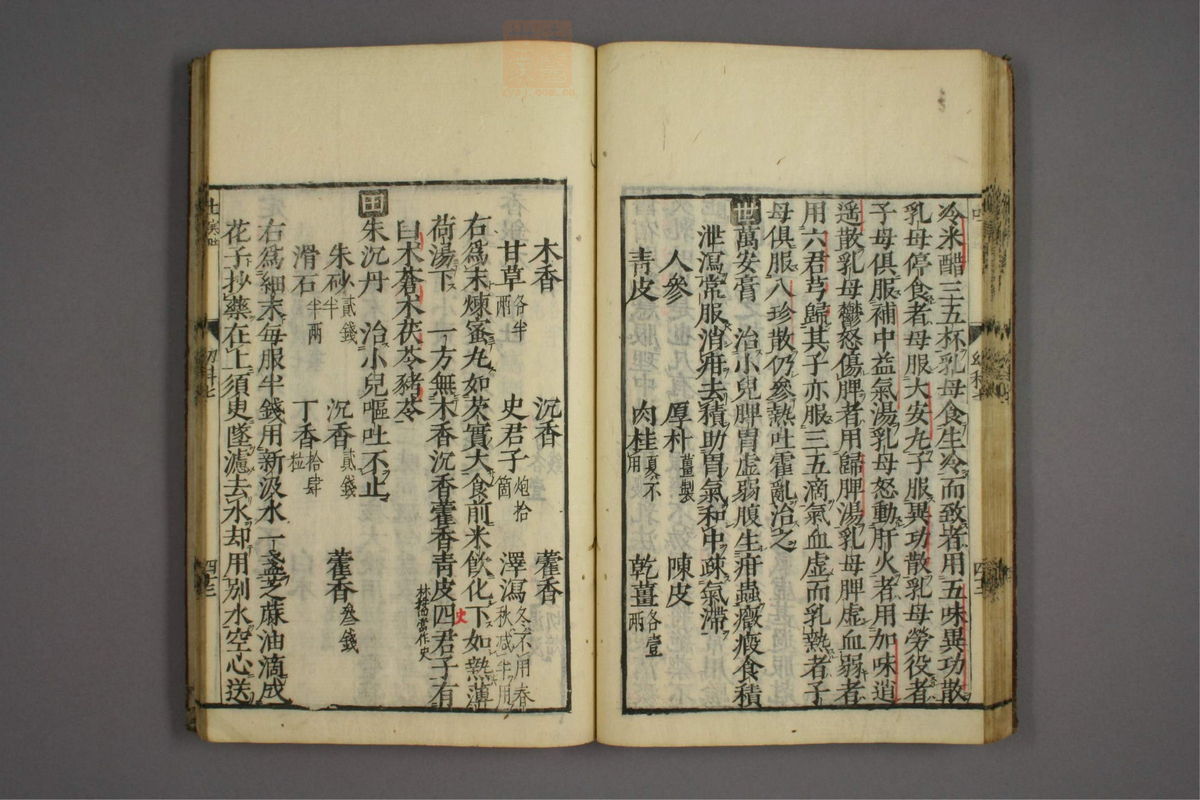 冷米醋三五杯乳母食生冷而致者用五味異功散
乳母停食者母服大安丸子服異功散乳母勞役者
子母俱服補中益氣湯乳母怒動肝火者用加味逍
遥散乳母鬱怒傷脾者用歸脾湯乳母脾虚血弱者
用六君芎歸其子亦服三五滴氣血虚而乳熱者子
母俱服八珍散仍參熱吐霍亂治之
世萬安膏 治小兒脾胃虚弱腹生疳蟲癥瘕食積
泄瀉常服消疳去積助胃氣和中疎氣滯
人參 厚朴薑製 陳皮
青皮 肉桂夏不用 乾薑各壹兩
木香 沉香 藿香
甘草各半兩 史君子炮拾箇 澤瀉冬不用春秋减半用
右爲末煉蜜丸如芡實大食前米飲化下如熱薄
荷湯下 一方無木香沉香藿香青皮四君子有
史
林擋當作史
白木蒼木茯苓豬苓
田朱沉丹 治小兒嘔吐不止
朱砂貳錢半 沉香貳錢 藿香叄錢
滑石半兩 丁香拾肆粒
右爲細末每服半錢用新汲水一盞芝蔴油滴成
花子抄藥在上須臾墜濾去水却用别水空心送
幼科七
四十三